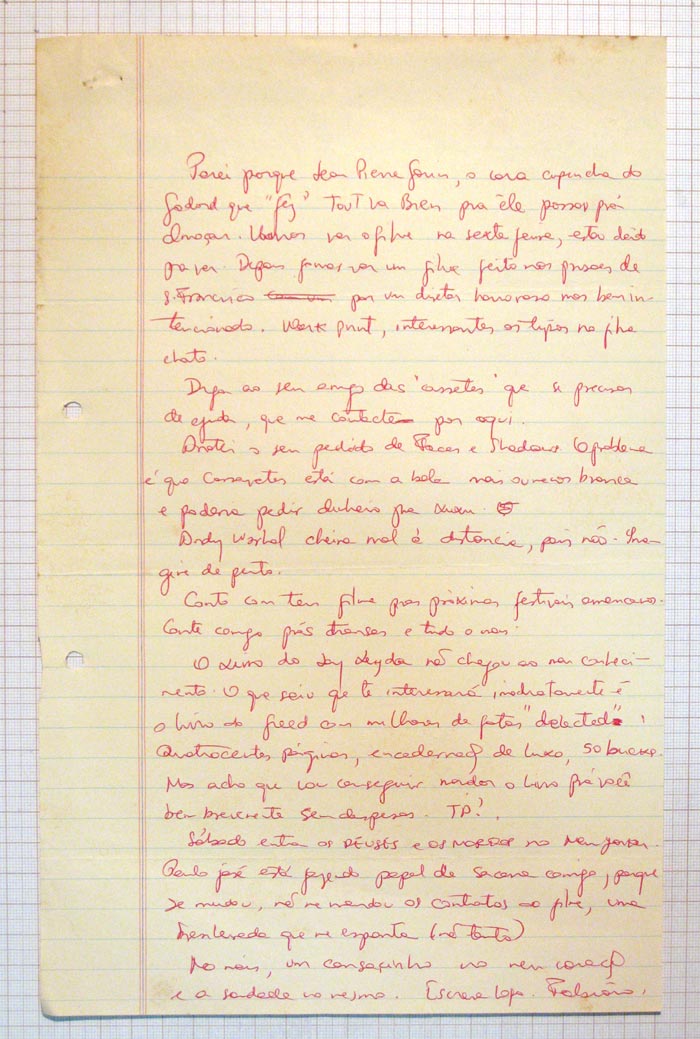 Parei porque Jean Pierre Gorin, o cara cupincha do
Godard que "fez" TOUT VA Bien pra êle passar prá
almoçar. Vamos ver o filme na sexta feira, estou doido
pra ver. Depois fomos ver um filme feito nas prisões de
S. Francisco por um diretor horroroso mas bem in-
tencionado. Work print, interessantes os tipos no filme
chato.
Diga ao seu amigo das "cassetes" que se precisar
de ajuda, que me contacte por aqui.
Anotei o seu pedido de Faces e Shadows. O problema
é que Cassavetes está com a bola mais ou menos branca
e poderia pedir dinheiro pra
Andy Warhol cheira mal à distancia, pois não. Ima-
gine de perto.
Conto com teu filme pros próximos festivais americanos.
Conte comigo prás transas e tudo o mais.
O Livro do Jay Leyda não chegou ao meu conheci-
mento. O que saiu que te interessará imediatamente é
o livro do Freed com milhares de fotos "delected"
Quatrocentas páginas, encadernação de luxo, 50 bucks.
Mas acho que vou conseguir mandar o livro prá você
bem brevemente sem despesas. TÁ?
Sábado entra OS DEUSES e OS MORTOS no New Yorker.
Paulo José está fazendo papel de sacana comigo, porque
se mudou, não me mandou os contratos do filme, uma
que me espanta (não tanto)
No mais, um cansacinho no meu coração
e a saudade no mesmo. Escreva logo. Fabiano.